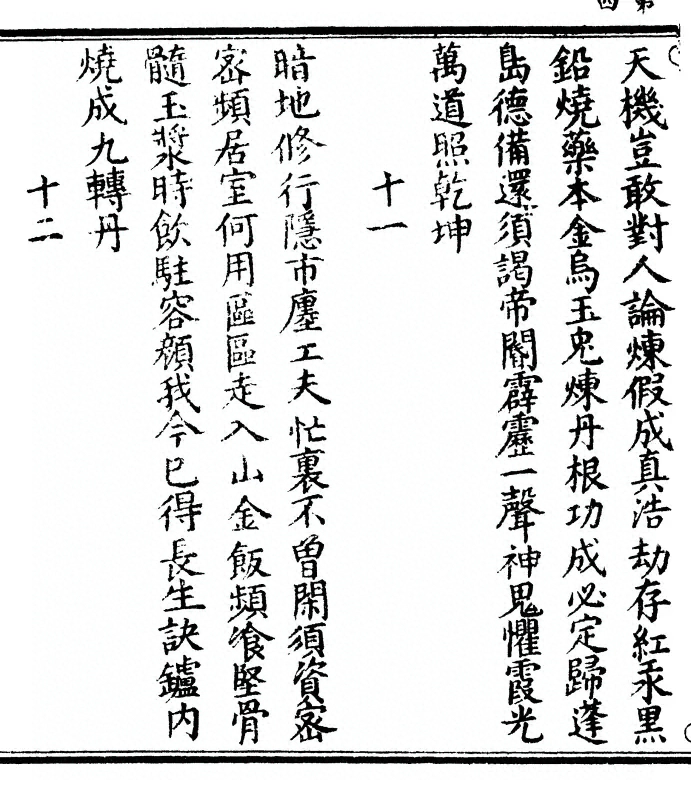 第四
天機豈敢對人論煉假成真浩劫存紅汞黑
鉛燒藥本金烏玉兔煉丹根功成必定歸蓬
島德備還須謁帝閽霹靂一聲神鬼懼霞光
萬道照乾坤
十一
暗地修行隱市廛工夫忙裏不曾閑須資密
密頻居室何用區區走入山金飯頻飡堅骨
髓玉漿時飲駐容顏我今已得長生訣鑪内
燒成九轉丹
十二